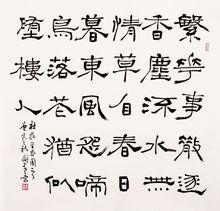 繁華事散逐
香塵流水無
情草自春日
暮東風怨啼
鳥落花猶似
墮樓人
杜牧金谷園